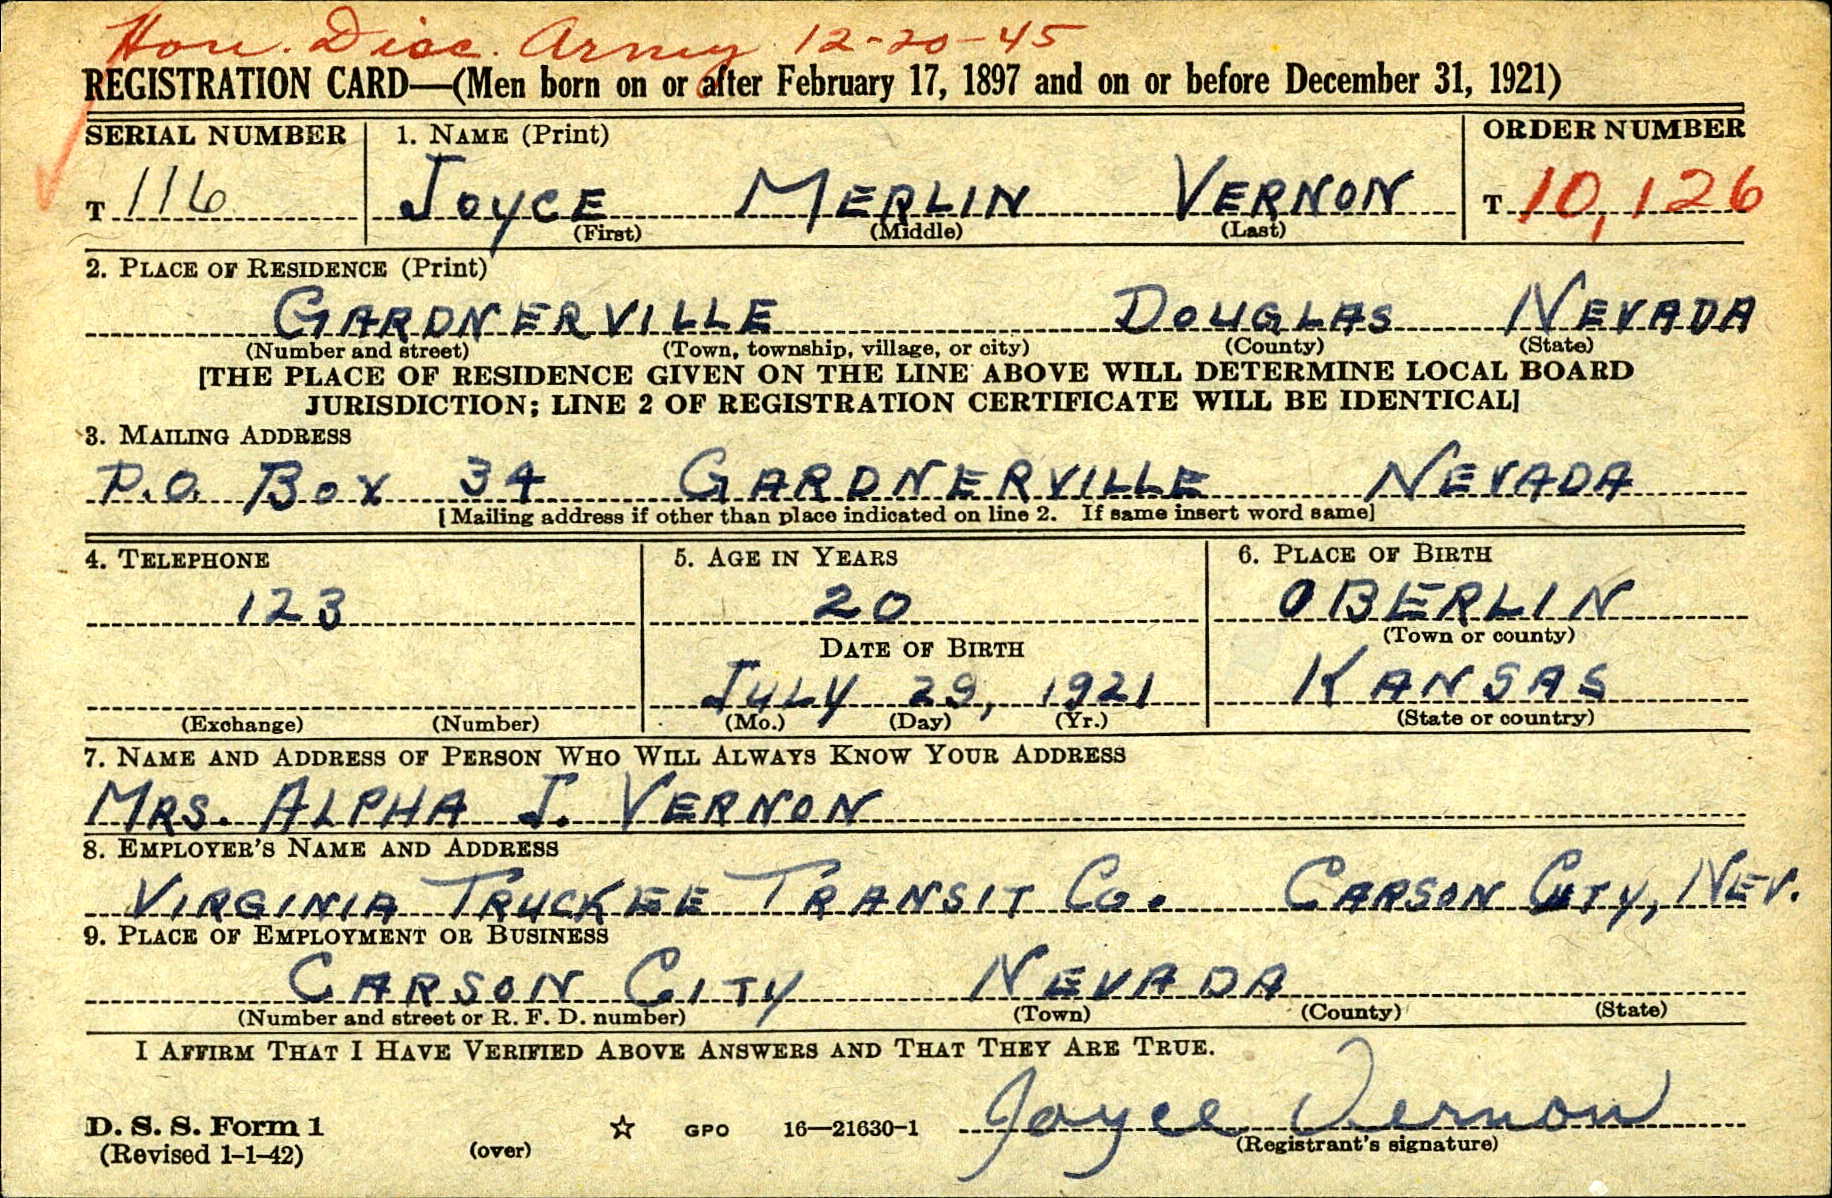 Hon. Disc. Army 12-20-45
REGISTRATION CARD—(Men born on or after February 17, 1897 and on or before December 31, 1921)
SERIAL NUMBER 1. NAME (Print) ORDER NUMBER
T 116 JOYCE MERLIN VERNON T 10,126
(First) (Middle) (Last)
2. PLACE OF RESIDENCE (Print)
GARDNERVILLE DOUGLAS NEVADA
(Number and street) (Town, township, village, or city) (County) (State)
[THE PLACE OF RESIDENCE GIVEN ON THE LINE ABOVE WILL DETERMINE LOCAL BOARD
JURISDICTION; LINE 2 OF REGISTRATION CERTIFICATE WILL BE IDENTICAL]
3. MAILING ADDRESS
P.O. BOX 34 GARDNERVILLE NEVADA
[Mailing address if other than place indicated on line 2. If same insert word same]
4. TELEPHONE 5. AGE IN YEARS 6. PLACE OF BIRTH
123 20 OBERLIN
DATE OF BIRTH (Town or county)
JULY 29, 1921 KANSAS
(Exchange) (Number) (Mo.) (Day) (Yr.) (State or country)
7. NAME AND ADDRESS OF PERSON WHO WILL ALWAYS KNOW YOUR ADDRESS
MRS. ALPHA J. VERNON
8. EMPLOYER'S NAME AND ADDRESS
VIRGINIA TRUCKEE TRANSIT CO. CARSON CITY, NEV.
9. PLACE OF EMPLOYMENT OR BUSINESS
CARSON CITY NEVADA
(Number and street or R. F. D. number) (Town) (County) (State)
I AFFIRM THAT I HAVE VERIFIED ABOVE ANSWERS AND THAT THEY ARE TRUE.
Joyce Vernon
D. S. S. Form 1 GPO 16—21630-1 (Registrant's signature)
(Revised 1-1-42) (over)